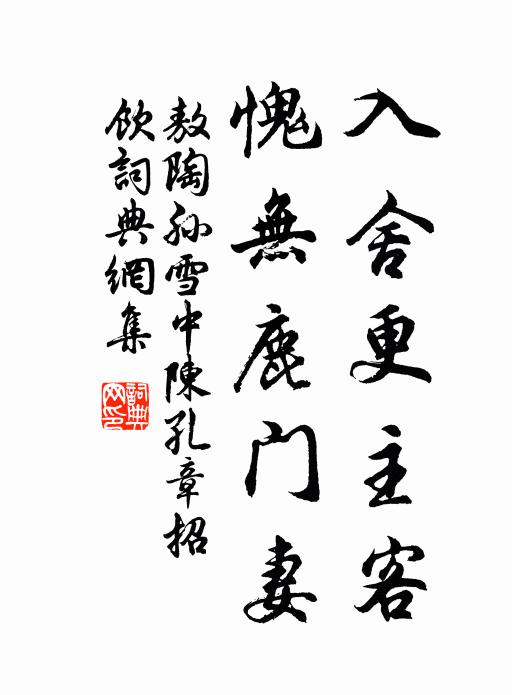 入舍更主客
愧無鹿門妻
敖陶孙雪中陳孔章招
飲詞典網集
詞典网印